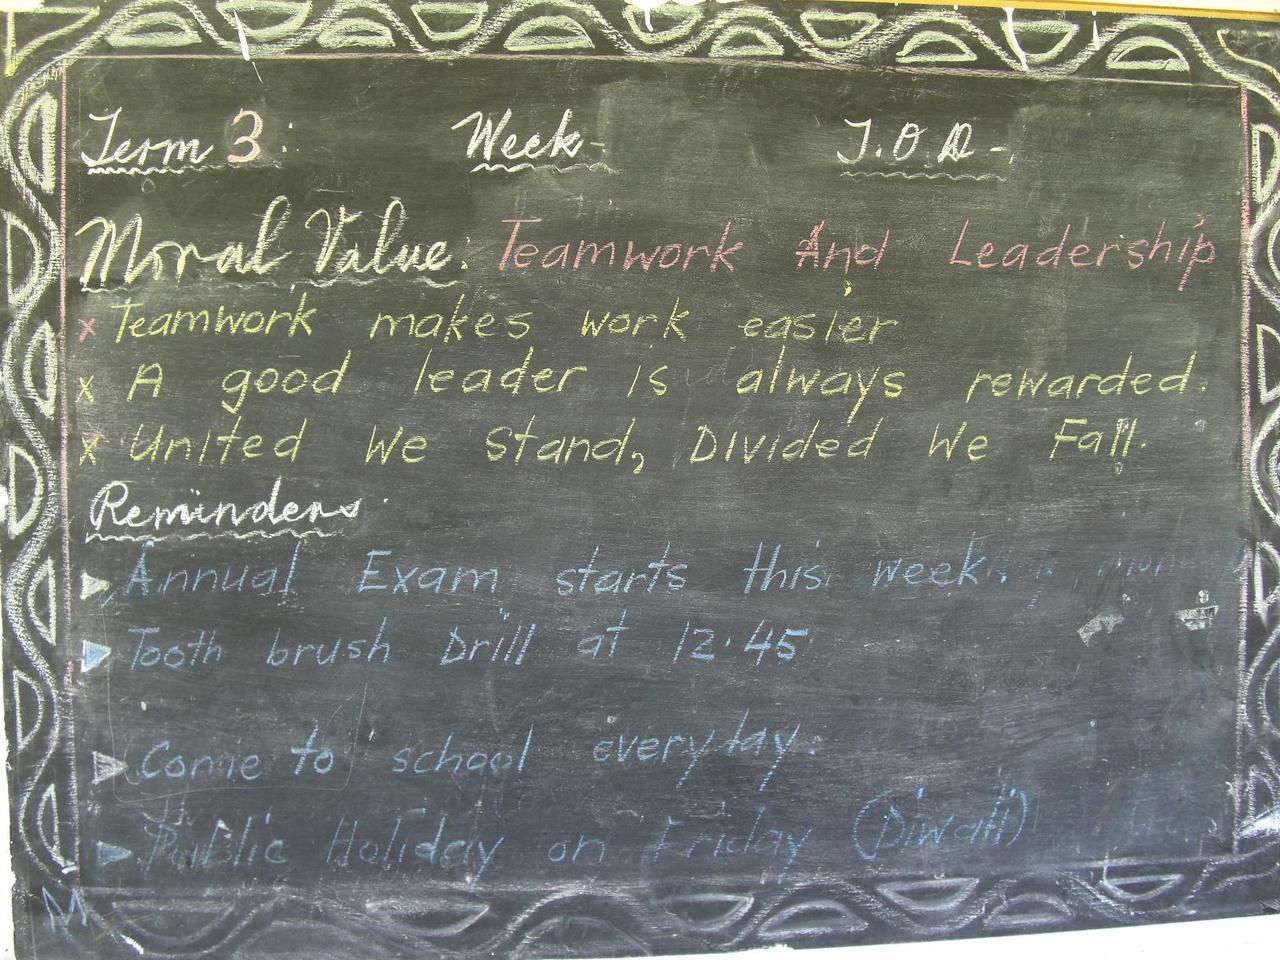 Term 3: Week- T.O.D-
Moral Value: Teamwork And Leadership
x Teamwork makes work easier
x A good leader is always rewarded.
x United We Stand, Divided We Fall.
Reminders
Annual Exam starts this week.
Tooth brush Drill at 12.45
Come to school everyday.
Public Holiday on Friday (Diwali)
M